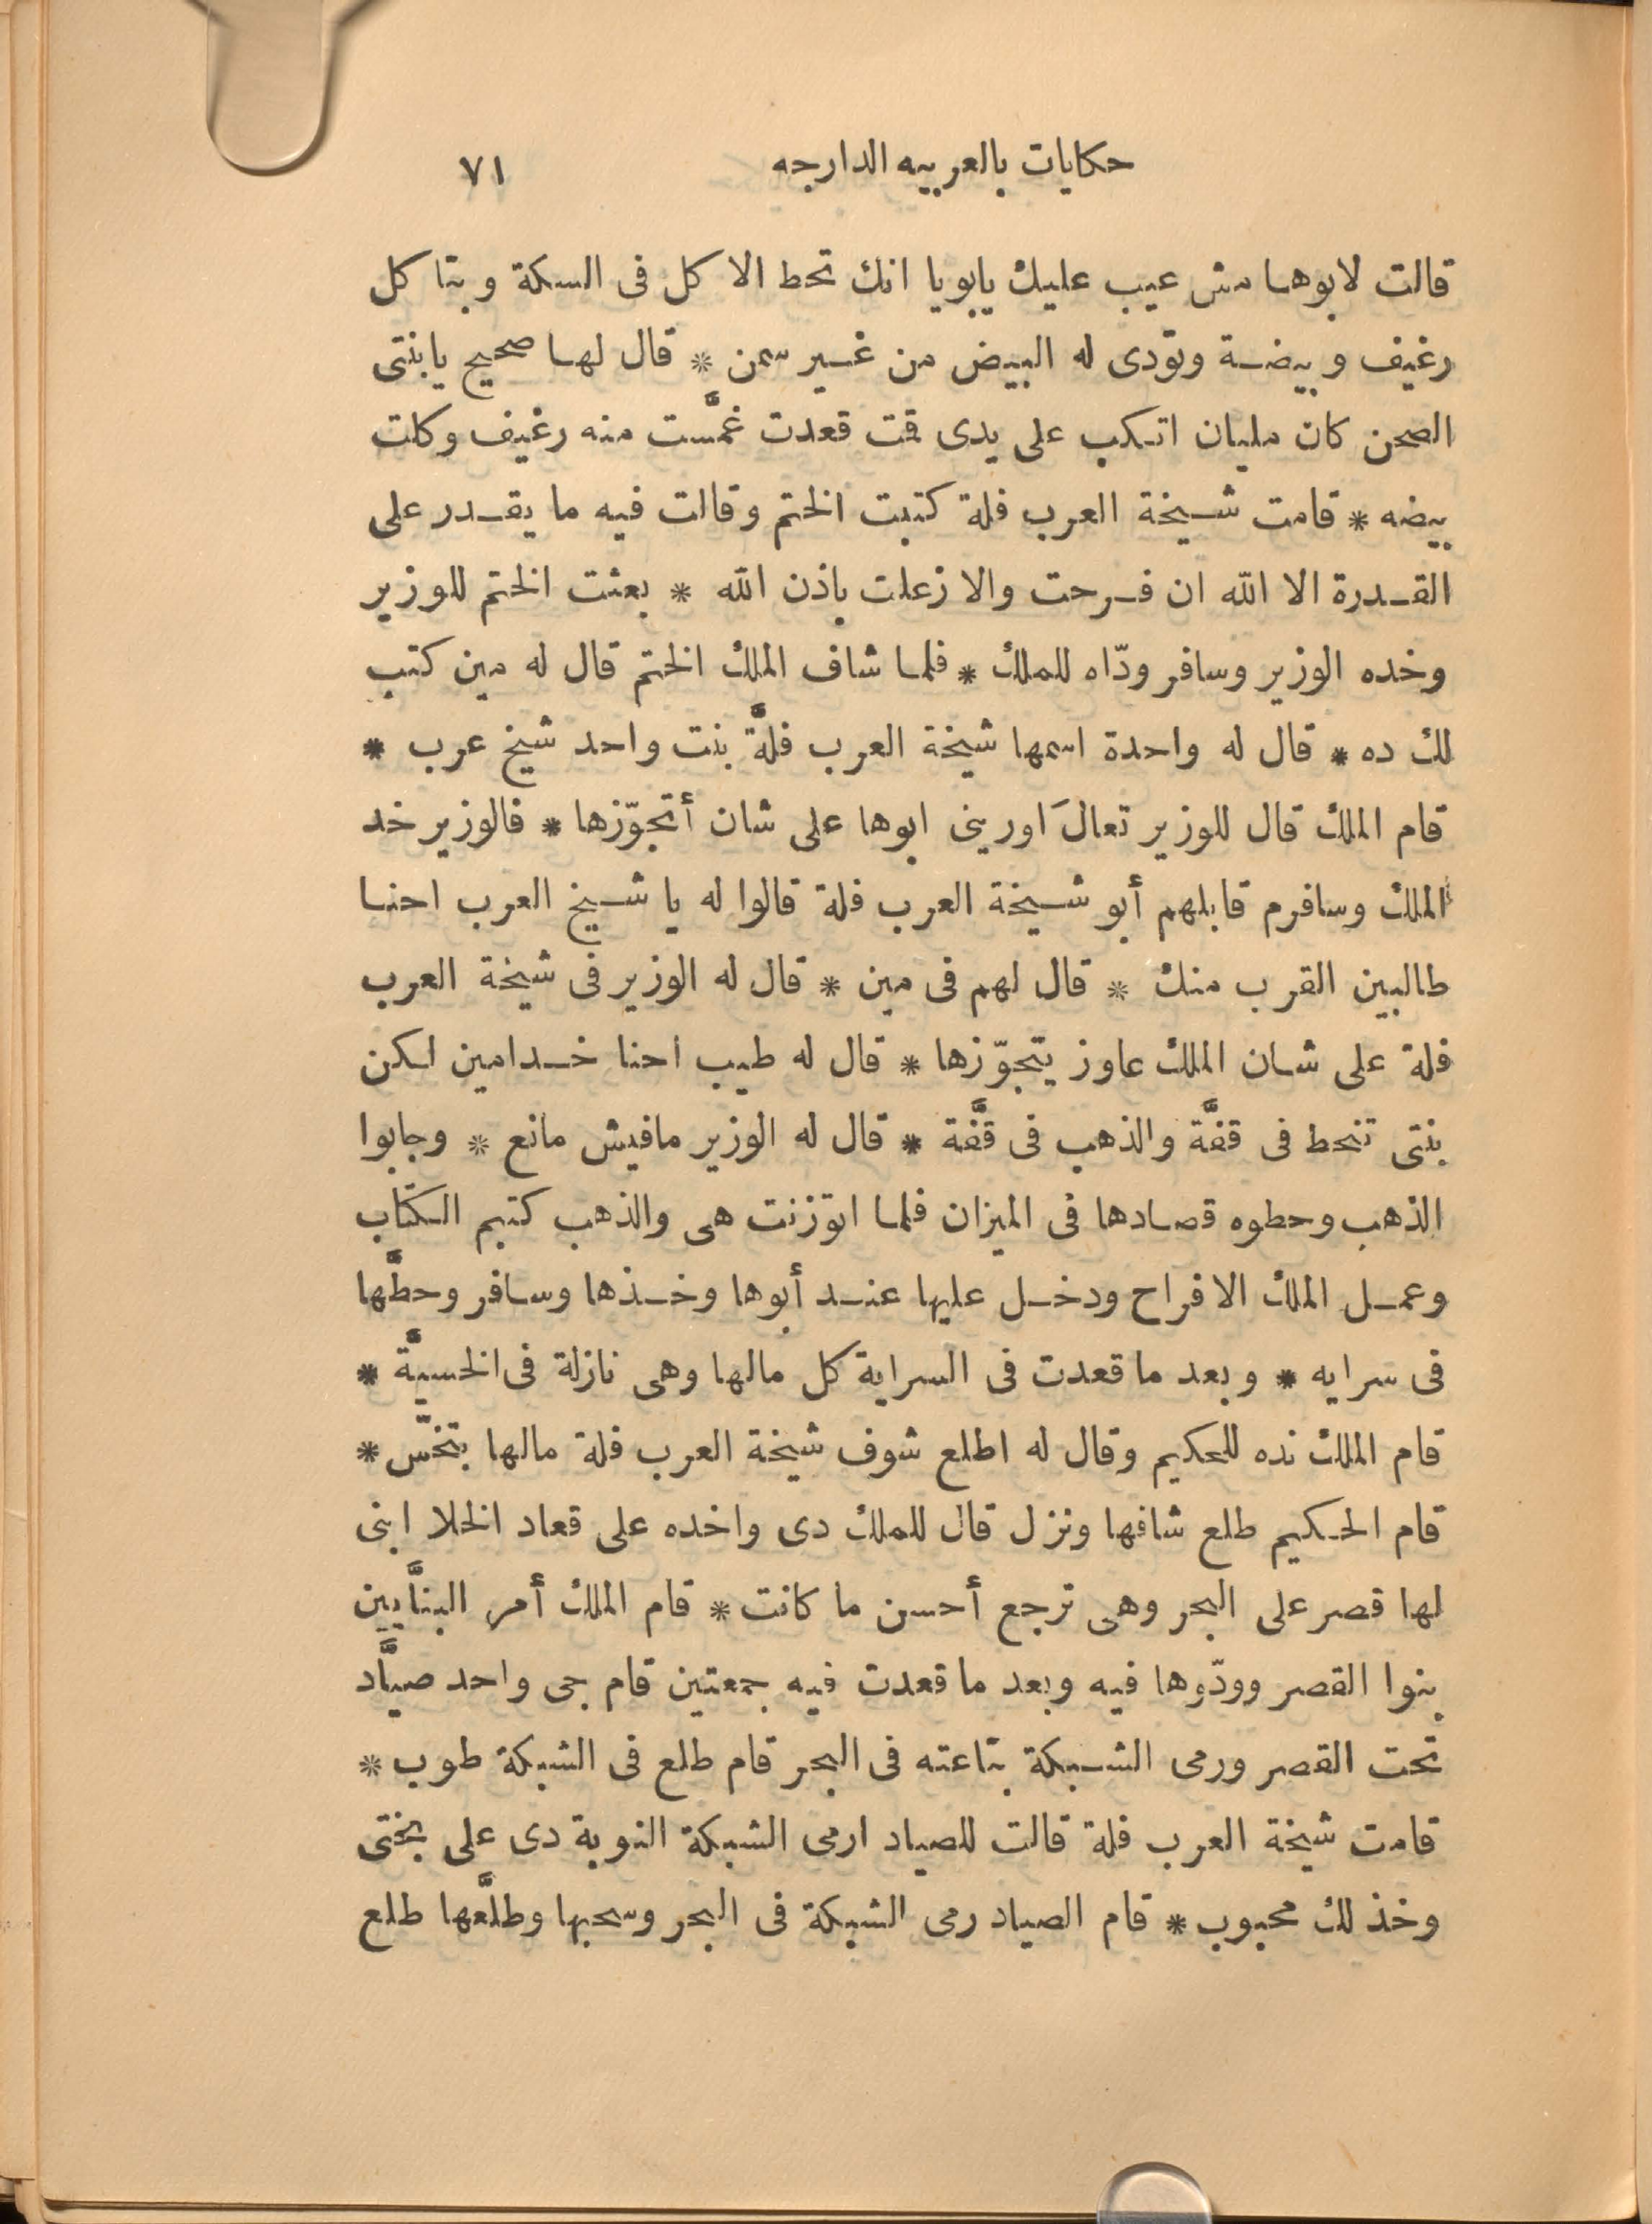 حكايات بالعربيه الدارجه ٧١
قالت لابوها مش عيب عليك يابويا انك تحط الاكل فى السكة وبتاكل
رغيف وبيضة وتودى له البيض من غير سمن * قال لها صحيح يابنتى
الصحن كان مليان اتكب على يدى قمت قعدت غمَّست منه رغيف وكلت
بيضه * قامت شيخة العرب فلة كتبت الختم وقالت فيه ما يقدر على
القدرة الا الله ان فرحت والا زعلت باذن الله * بعثت الختم للوزير
وخده الوزير وسافر ودّاه للملك * فلما شاف الملك الختم قال له مين كتب
لك ده * قال له واحدة اسمها شيخة العرب فلَّة بنت واحد شيخ عرب *
قام الملك قال للوزير تعالَ اورينى ابوها على شان أتجوّزها * فالوزير خد
الملك وسافرم قابلهم أبو شيخة العرب فلة قالوا له يا شيخ العرب احنا
طالبين القرب منك * قال لهم فى مين * قال له الوزير فى شيخة العرب
فلة على شان الملك عاوز يتجوّزها * قال له طيب احنا خدامين لكن
بنتى تنحط فى قفَّة والذهب فى قفَّة * قال له الوزير مافيش مانع * وجابوا
الذهب وحطوه قصادها فى الميزان فلما اتوزنت هى والذهب كتبم الكتاب
وعمل الملك الافراح ودخل عليها عند أبوها وخذها وسافر وحطَّها
فى سرايه * وبعد ما قعدت فى السراية كل مالها وهى نازلة فى الخسيَّة *
قام الملك نده للحكيم وقال له اطلع شوف شيخة العرب فلة مالها بتخسّ *
قام الحكيم طلع شافها ونزل قال للملك دى واخده على قعاد الخلا ابنى
لها قصر على البحر وهى ترجع أحسن ما كانت * قام الملك أمر البنَّايين
بنوا القصر وودّوها فيه وبعد ما قعدت فيه جمعتين قام جى واحد صيَّاد
تحت القصر ورمى الشبكة بتاعته فى البحر قام طلع فى الشبكة طوب *
قامت شيخة العرب فلة قالت للصياد ارمى الشبكة النوبة دى على بختى
وخذ لك محبوب * قام الصياد رمى الشبكة فى البحر وسحبها وطلَّعها طلع